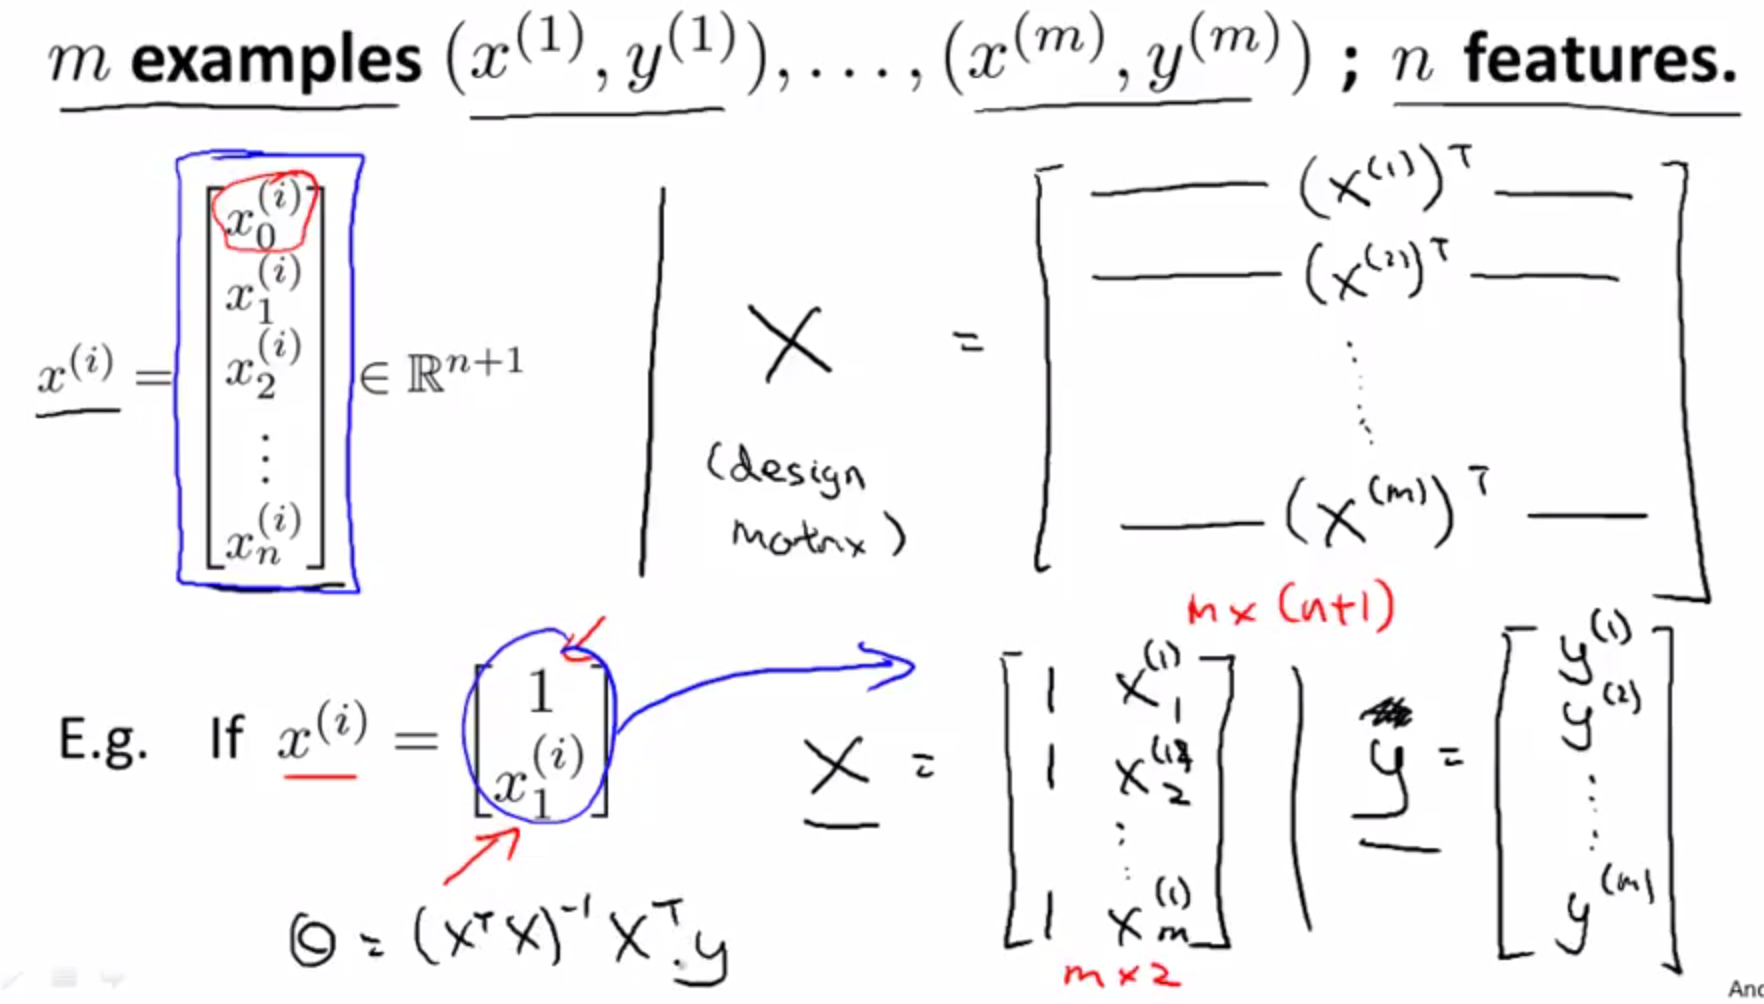 m examples (x^{(1)}, y^{(1)}), . . . , (x^{(m)}, y^{(m)}) ; n features.
x^{(i)} = [x_0^{(i)} x_1^{(i)} x_2^{(i)} ⋮ x_n^{(i)}] ∈ ℝ^{n+1}
X = [— (x^{(1)})^T — — (x^{(2)})^T — ⋮ — (x^{(m)})^T —]
(design
matrix)
m × (n+1)
E.g. If x^{(i)} = [1 x_1^{(i)}]
X = [1 x_1^{(1)} 1 x_2^{(1)} ⋮ 1 x_m^{(1)}]
m × 2
y = [y^{(1)} y^{(2)} ⋮ y^{(m)}]
Θ = (X^T X)^{-1} X^T y
And